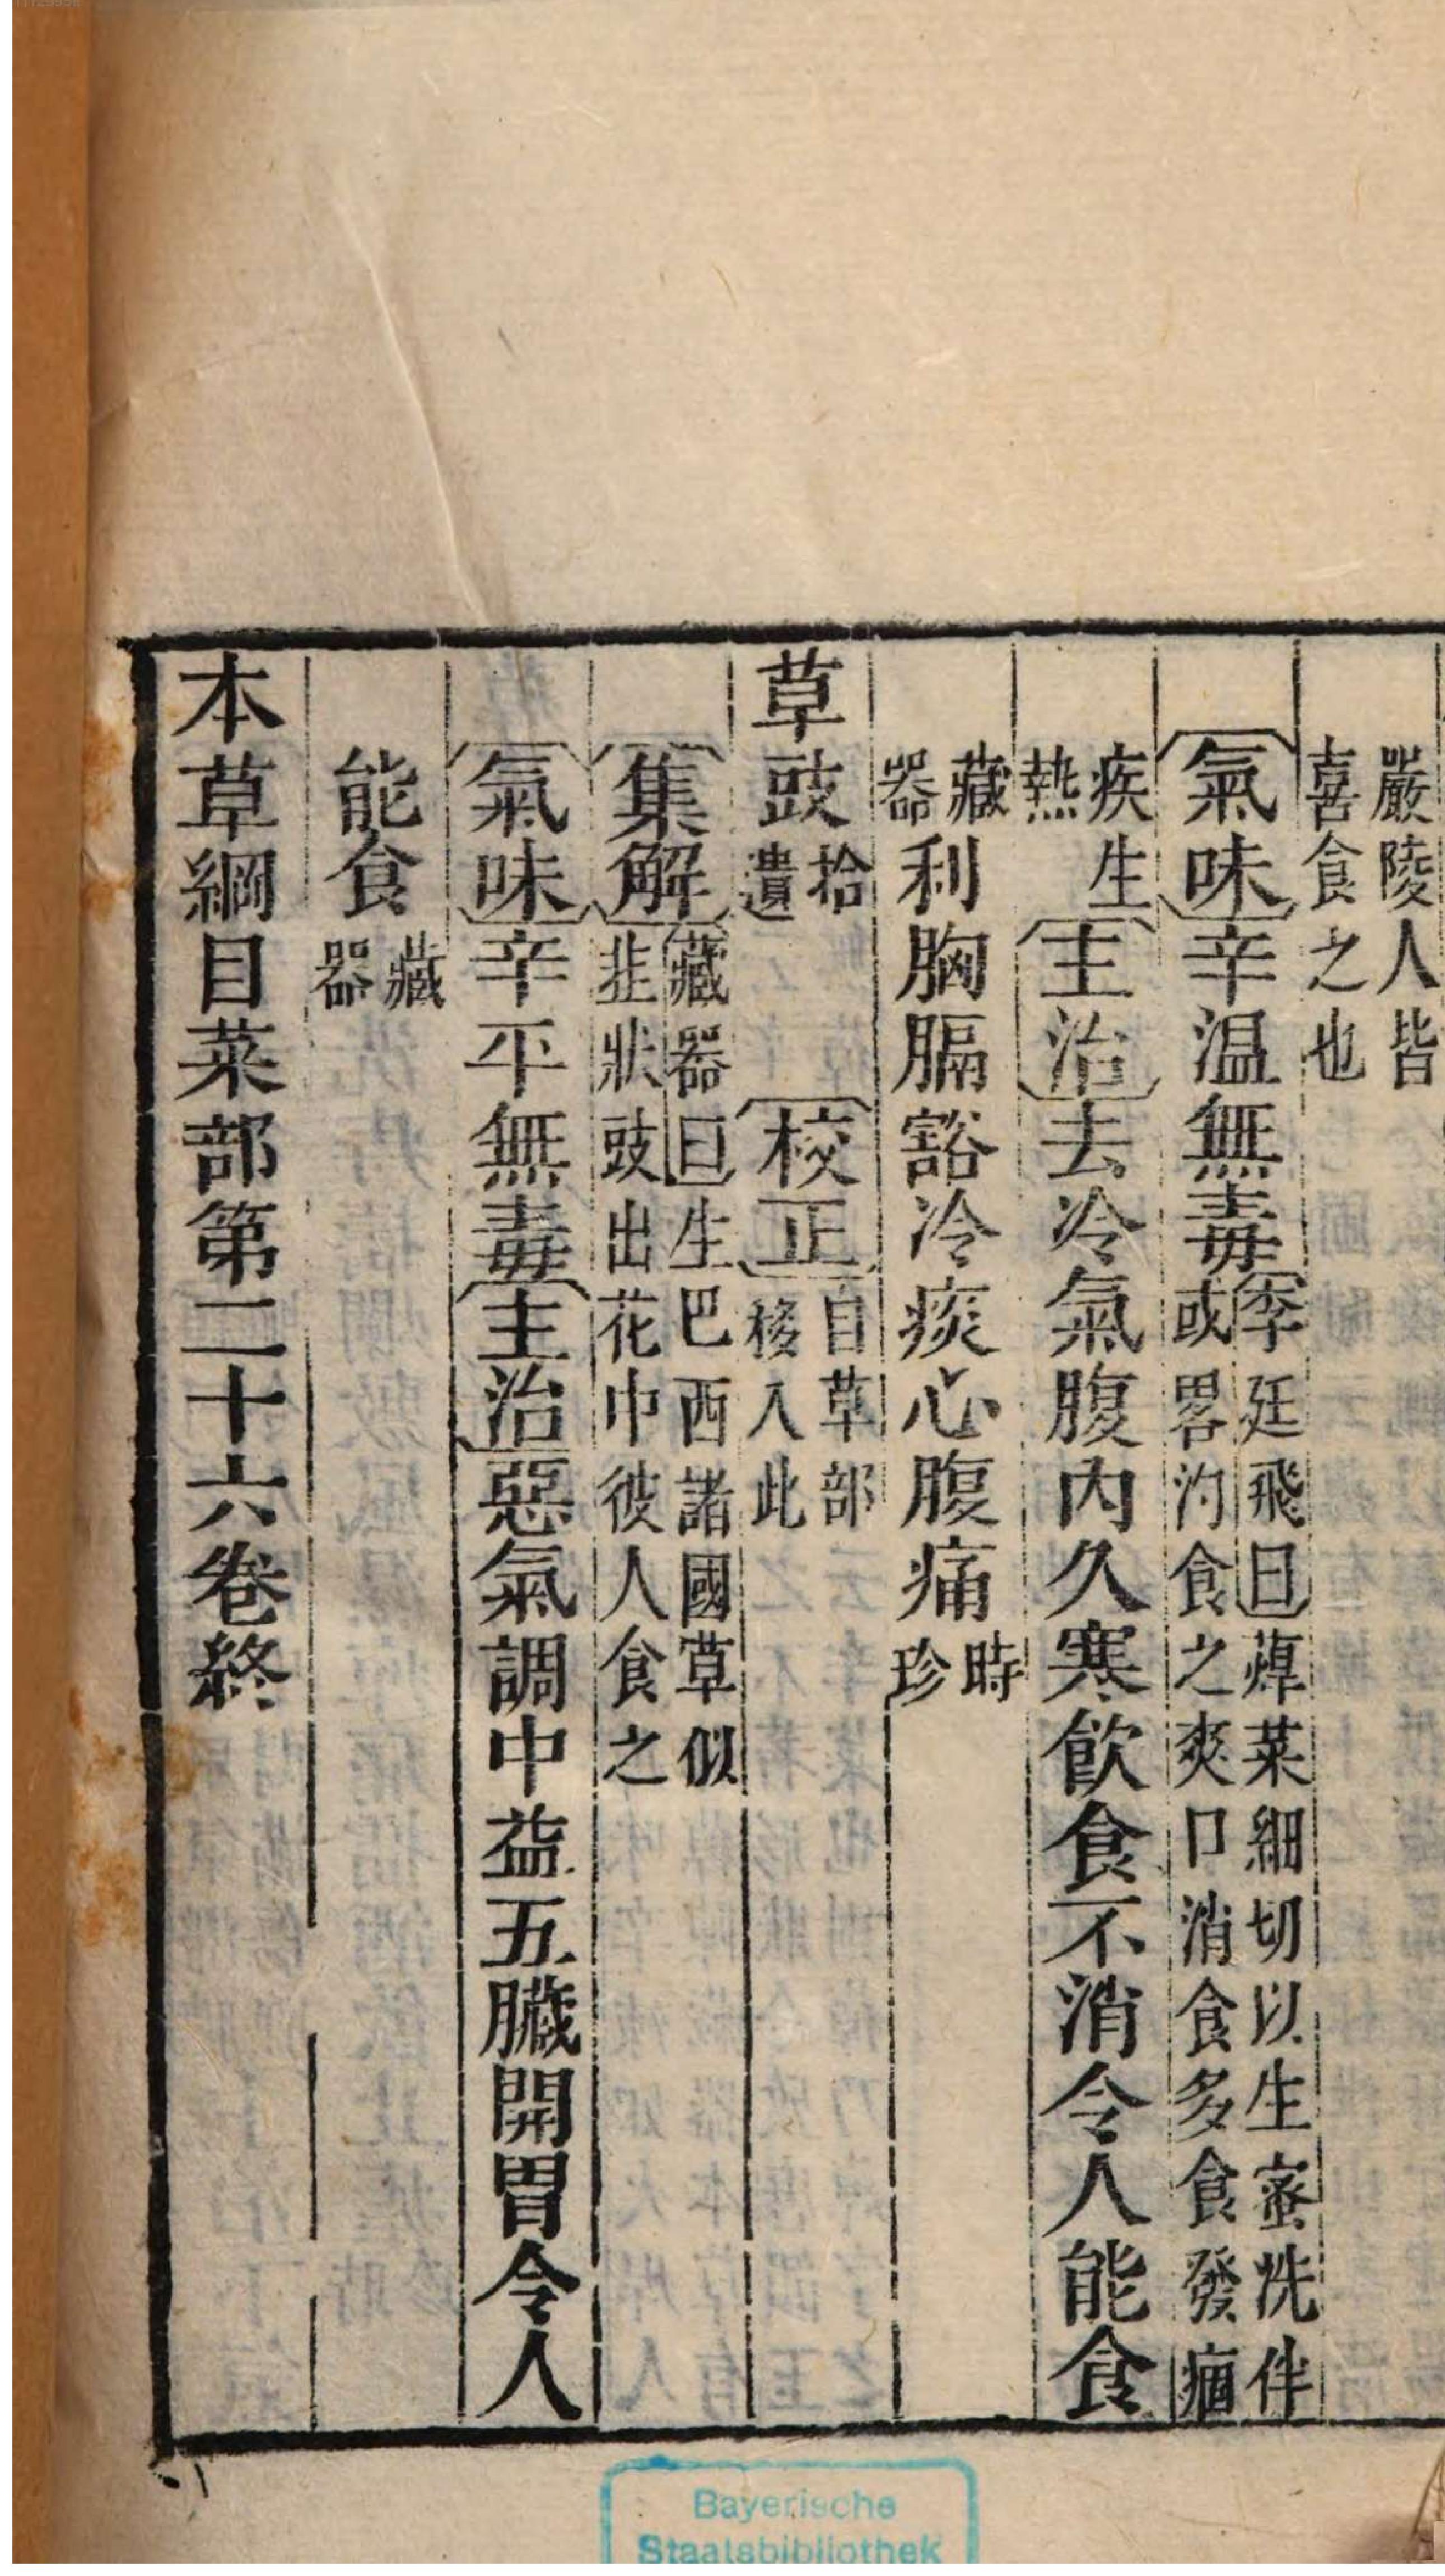 嚴陵人皆
喜食之也
氣味辛温無毒李廷飛曰蔊菜細切以生蜜洗伴
或畧汋食之爽口消食多食發痼
疾生
熱
主治去冷氣腹内久寒飲食不消令人能食
藏器利胸膈豁冷痰心腹痛時珍
草豉拾遺
校正自草部移入此
集解藏器曰生巴西諸國草似
韭狀豉出花中彼人食之
氣味辛平無毒主治惡氣調中益五臟開胃令人
能食藏器
本草綱目菜部第二十六卷終
Bayerische
Staatsbibliothek